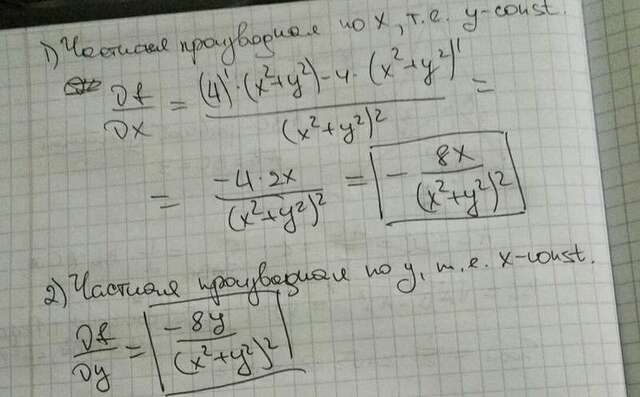 1) Частная производная по x, т.е. y-const.
∂f/∂x = ((4)'·(x²+y²)-4·(x²+y²)')/(x²+y²)² =
= (-4·2x)/(x²+y²)² = - 8x/(x²+y²)²
2) Частная производная по y, т.е. x-const.
∂f/∂y = (-8y)/(x²+y²)²